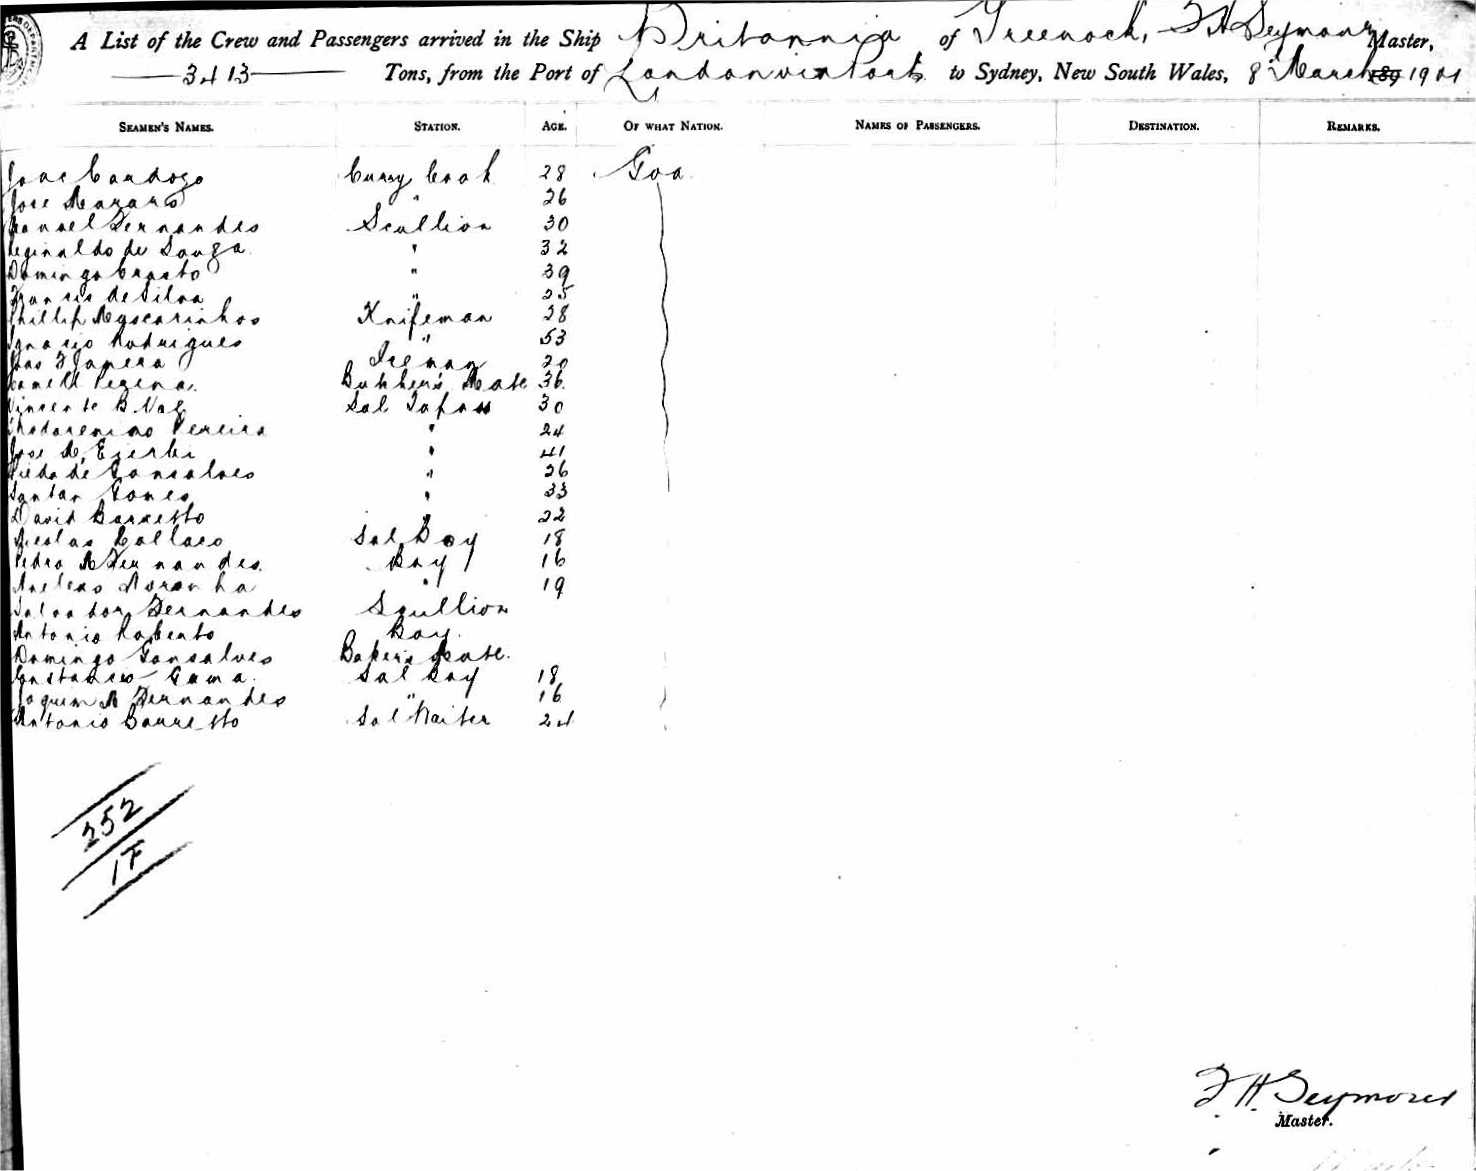 A List of the Crew and Passengers arrived in the Ship Britannia of Greenock, F H Seymour Master,
3413 Tons, from the Port of London via Ports to Sydney, New South Wales, 8 March 189 1901
SEAMEN'S NAMES. STATION. AGE. OF WHAT NATION. NAMES OF PASSENGERS. DESTINATION. REMARKS.
Joao Cardozo Curry Cook 28 Goa
Jose Nazaro " 26
Manoel Fernandes Scullion 30
Reginaldo de Souza " 32
Domingo Crasto " 39
Francis de Silva " 25
Phillip Mascarinhos Knifeman 28
Ignacio Rodrigues " 53
Joao F Iceman 20
Butcher's Mate 36
Vincente B Vaz Sal Topass 30
Pereira " 24
Jose de " 41
Piedade Gonsalves " 26
Santan Gomes " 33
David Barretto " 22
Nicolas Collaco Sal Boy 18
Pedro M Fernandes Boy 16
Noronha " 19
Salvador Fernandes Scullion
Antonio Roberto Boy
Domingo Gonsalves Baker's Mate
Constancio Gama Sal Boy 18
Joaquim M Fernandes " 16
Antonio Barretto Sal Waiter 24
252
1F
F. H. Seymour
Master.